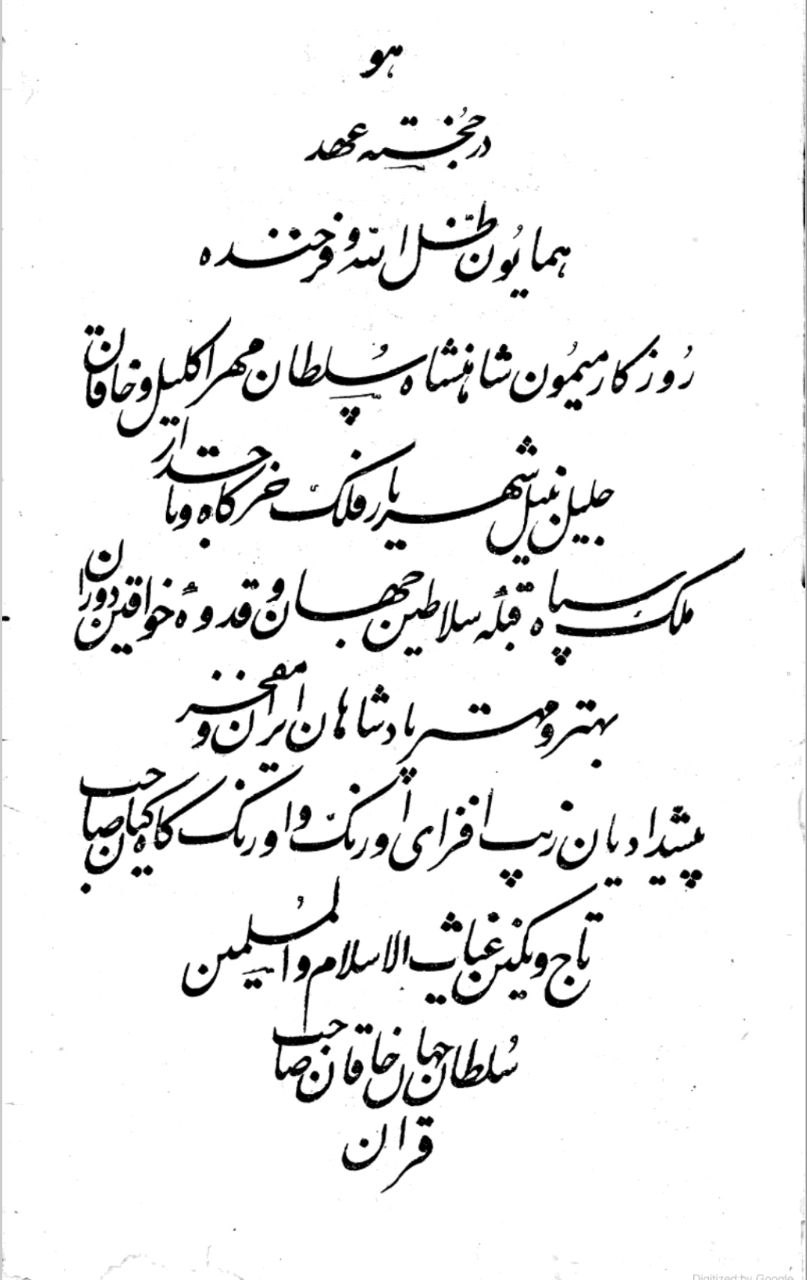 هو
در خجسته عهد
همایون ظل الله و فرخنده
روزکار میمون شاهنشاه سلطان مهر اکلیل و خاقان
جلیل نبیل شهریار فلک خرکاه و تاجدار
ملک سپاه قبله سلاطین جهان و قدوهٔ خواقین دوران
بهتر و مهتر پادشاهان ایران و مفخر
پیشدادیان زیب افزای اورنک و اورنک کاه کیان صاحب
تاج و نکین غیاث الاسلام والمسلمین
سلطان جهان خاقان صاحب
قران
Digitized by Google